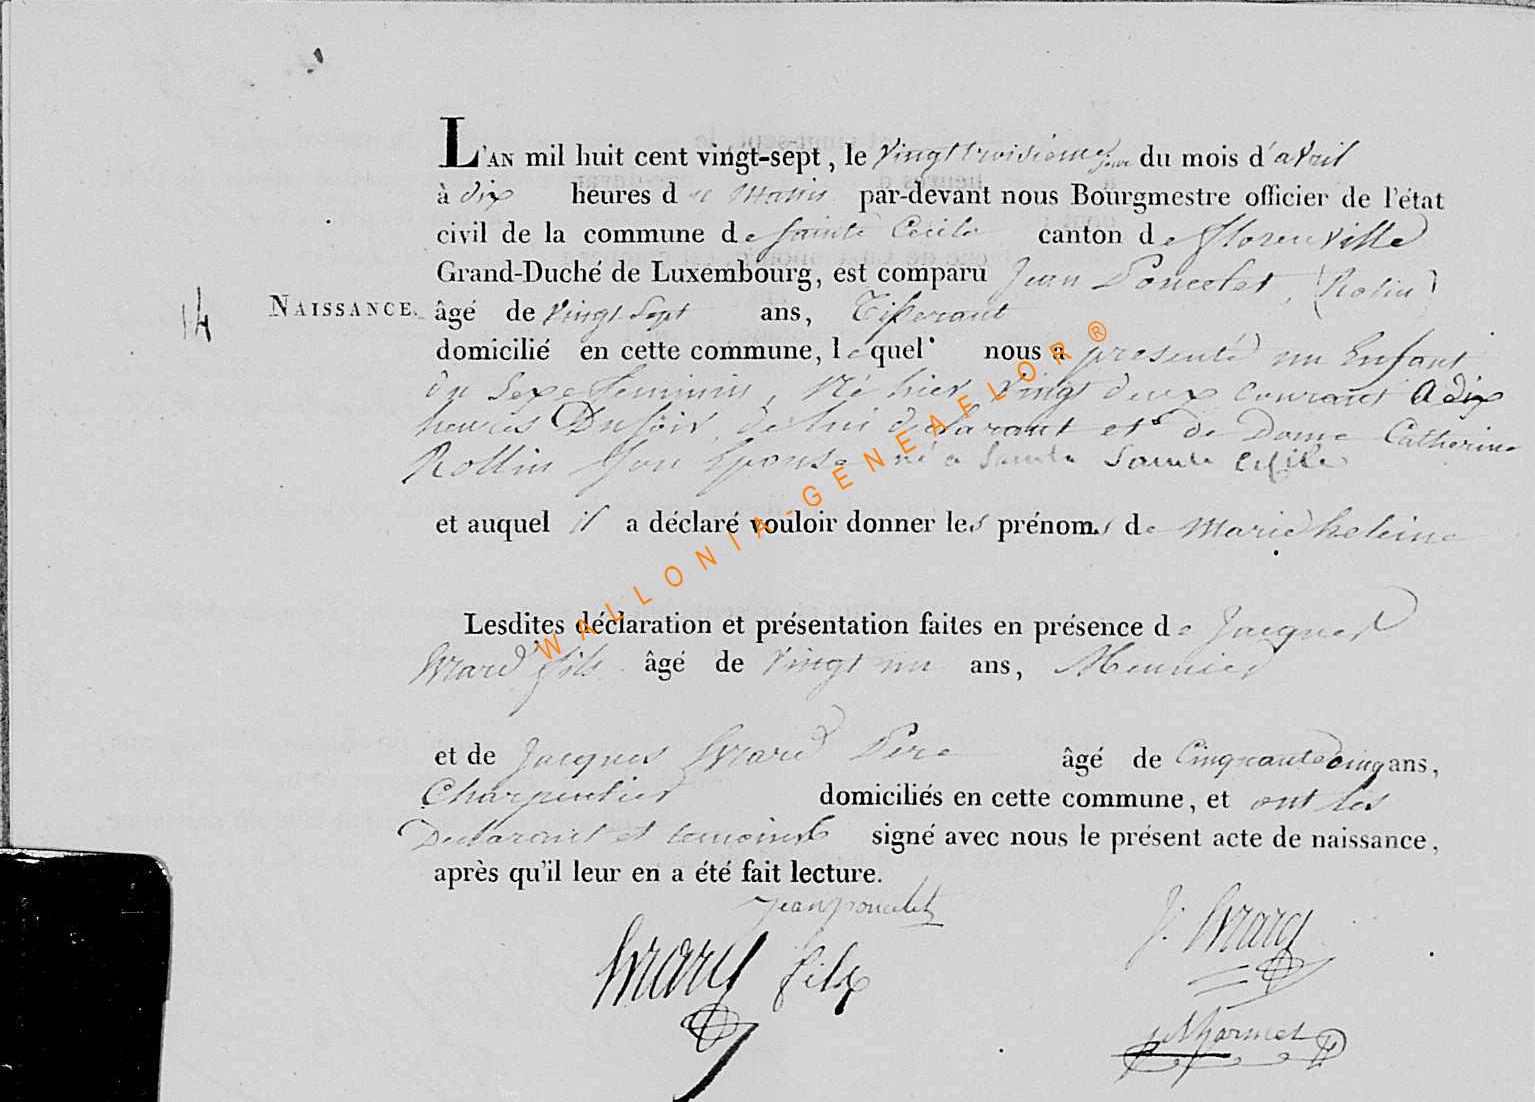 L'AN mil huit cent vingt-sept, le vingt troisieme jour du mois d'avril
à dix heures du matin par-devant nous Bourgmestre officier de l'état
civil de la commune de Sainte Cecile canton de Florenville
Grand-Duché de Luxembourg, est comparu Jean Poncelet, (Rolin)
14 NAISSANCE. âgé de vingt sept ans, Tisserant
domicilié en cette commune, lequel nous a presenté un Enfant
du Sexe feminin, Né hier vingt deux courant A dix
heures Du soir, de lui declarant et de Dame Catherine
Rollin Son Epouse né a Sainte Cecile
et auquel il a déclaré vouloir donner les prénoms de Marie heleine
Lesdites déclaration et présentation faites en présence de Jacques
Evrard fils âgé de vingt un ans, Meunier
et de Jacques Evrard Pere âgé de Cinquante Cinq ans,
Charpentier domiciliés en cette commune, et ont les
Declarant et temoins signé avec nous le présent acte de naissance,
après qu'il leur en a été fait lecture.
Jean poncelet
Evrard fils
J. Evrard
WALLONIA-GENEAFLOR ®